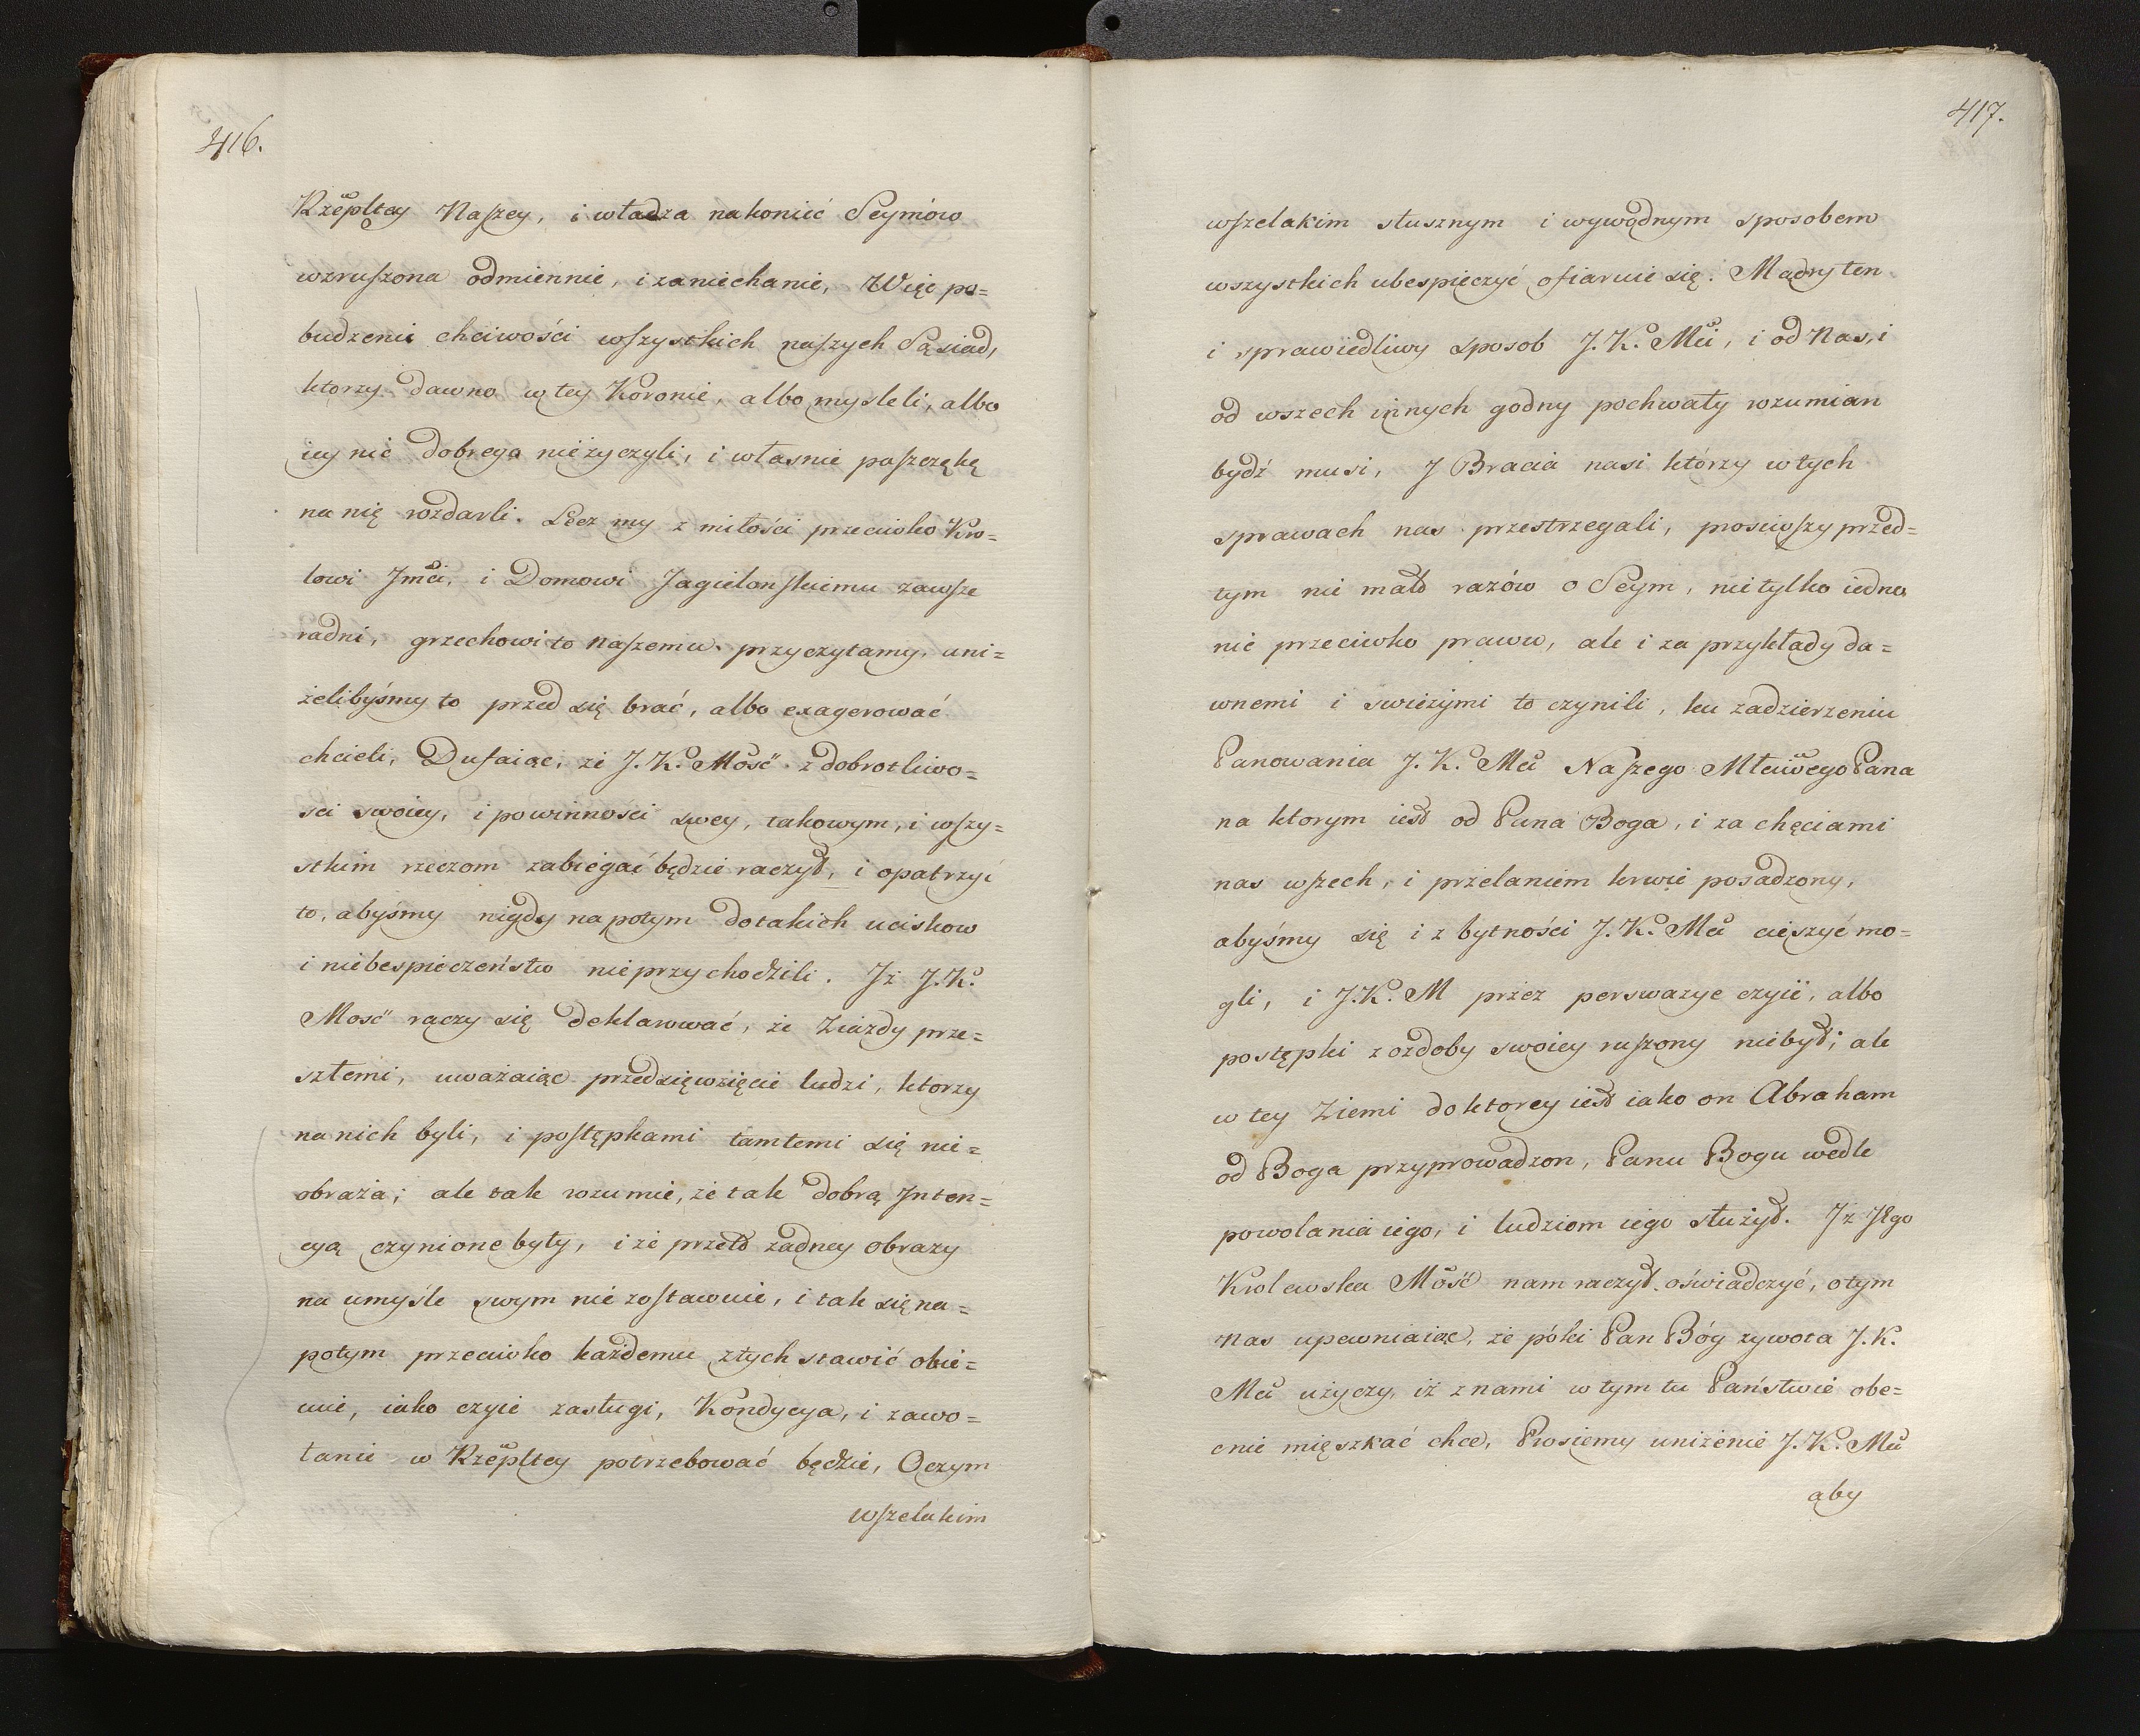 416.
Rzepltey Naszey, i władza nakonieć Seymów
wzruszona odmiennie, i zaniechanie, Więc po=
budzenie chciwości wszystkich naszych Sąsiad,
ktorzy dawno w tey Koronie, albo mysleli, albo
iey nic dobrego nieżyczyli, i własnie paszczękę
na nię rozdarli. Lecz my z miłości przeciwko Kro=
lowi Jmci, i Domowi Jagielonskiemu zawsze
radni, grzechowi to naszemu przyczytamy, uni=
żelibyśmy to przed się brać, albo exagerować
chcieli, Dufaiąc, że J. K. Mość z dobrotliwo=
sci swoiey, i powinności swey, takowym, i wszy=
stkim rzeczom zabiegać będzie raczył, i opatrzyć
to, abyśmy nigdy napotym do takich ucisków
i niebespieczeństw nieprzychodzili. Jż J. K.
Mość raczy się deklarować, że Ziazdy prze=
szłemi, uważaiąc przedsięwzięcie ludzi, ktorzy
na nich byli, i postępkami tamtemi się nie=
obraża; ale tak rozumie, że tak dobrą Inten=
cyą czynione były, i że przeto żadney obrazy
na umyśle swym nie zostawuie, i tak się na=
potym przeciwko każdemu z tych stawić obie=
cuie, iako czyie zasługi, Kondycya, i zawo=
łanie w Rzepltey potrzebować będzie, O czym
wszelakim
417.
wszelakim słusznym i wywodnym sposobem
wszystkich ubespieczyć ofiaruie się. Mądry ten
i sprawiedliwy sposob J. K. Mci, i od Nas, i
od wszech innych godny pochwały rozumian
bydź musi, J Bracia nasi którzy w tych
sprawach nas przestrzegali, prosiwszy przed=
tym nie mało razów o Seym, nie tylko iedno
nie przeciwko prawu, ale i za przykłady da=
wnemi i swieżymi to czynili, ku zadzierzeniu
Panowania J. K. Mci Naszego Mławego Pana
na ktorym iest od Pana Boga, i za chęciami
nas wszech, i przelaniem krwie posadzony,
abyśmy się i z bytności J. K. Mci cieszyć mo=
gli, i J. K. M przez perswazye czyie, albo
postępki z ozdoby swoiey ruszony niebył; ale
w tey Ziemi do ktorey iest iako on Abraham
od Boga przyprowadzon, Panu Bogu wedle
powołania iego, i ludziom iego służył. Jż JEgo
Krolewska Mość nam raczył oświadczyć, o tym
nas upewniaiąc, że póki Pan Bóg zywota J. K.
Mci użyczy, iż z nami w tym tu Państwie obe=
cnie mięszkać chce, Prosiemy uniżenie J. K. Mci
aby